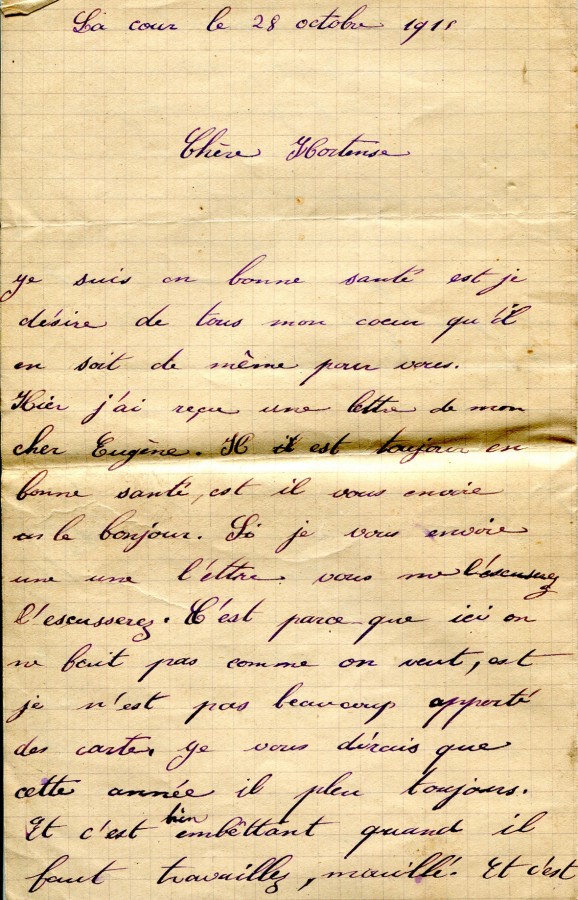 La cour le 28 octobre 191
Chère Hortense
Je suis en bonne santé est je
désire de tous mon coeur qu'il
en soit de même pour vous.
Hier j'ai reçu une lettre de mon
cher Eugène. Il est toujour en
bonne santé, est il vous envoie
le bonjour. Si je vous envoie
une une l'éttre vous me l'escuserez
l'escusserez. C'est parce que ici on
ne fait pas comme on veut, est
je n'est pas beaucoup apporté
des carte. Je vous dirais que
cette année il pleu toujours.
Et c'est bien embêttant quand il
faut travaillez, mouillé. Et c'est